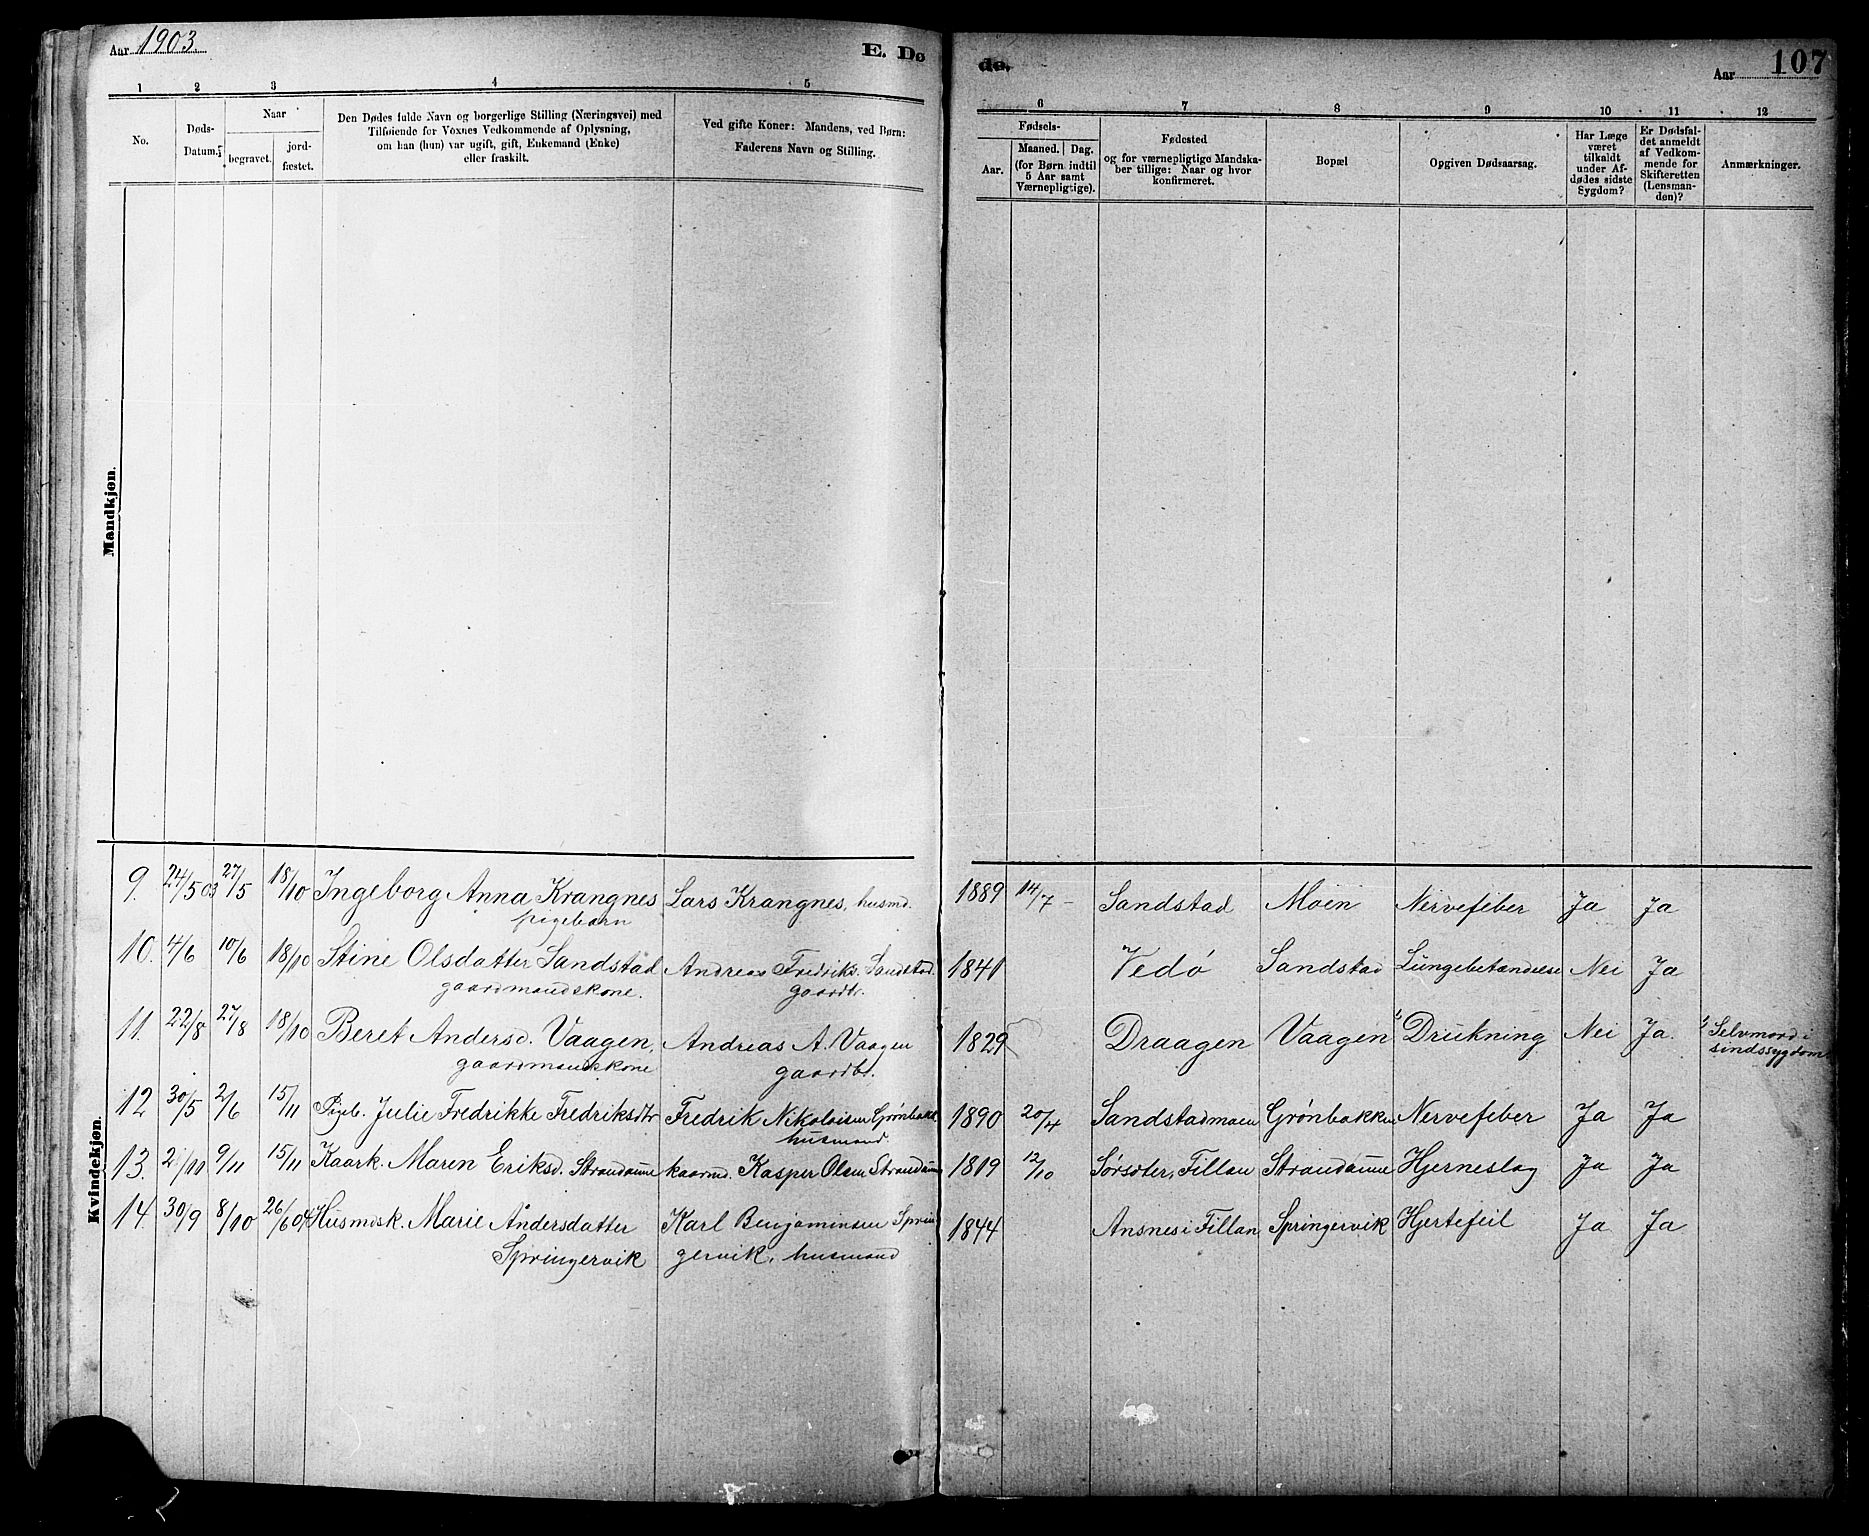 Aar 1903
E. Dø
de.
Aar
107
1 2 3 4 5
No.
Døds-
Datum.
Naar
begravet.
jord-
fæstet.
Den Dødes fulde Navn og borgerlige Stilling (Næringsvei) med
Tilføiende for Voxnes Vedkommende af Oplysning,
om han (hun) var ugift, gift, Enkemand (Enke)
eller fraskilt.
Ved gifte Koner: Mandens, ved Børn:
Faderens Navn og Stilling.
6 7 8 9 10 11 12
Fødsels-
Aar.
Maaned. Dag.
(for Børn indtil
5 Aar samt
Værnepligtige).
Fødested
og for værnepligtige Mandska-
ber tillige: Naar og hvor
konfirmeret.
Bopæl
Opgiven Dødsaarsag.
Har Læge
været
tilkaldt
under Af-
dødes sidste
Sygdom?
Er Dødsfal-
det anmeldt
af Vedkom-
mende for
Skifteretten
(Lensman-
den)?
Anmærkninger.
Mandkjøn.
Kvindekjøn.
9. 24/5 03 27/5 18/10 Ingeborg Anna Krangnes Lars Krangnes, husmd. 1889 14/7 - Sandstad Moen Nervefeber Ja Ja
pigebarn
10. 4/6 10/6 18/10 Stine Olsdatter Sandstad Andreas Fredriks. Sandstad. 1841 Vedø Sandstad Lungebetændelse Nei Ja
gaardmandskone. gaardbr.
11. 22/8 27/8 18/10 Beret Andersd. Vaagen, Andreas A. Vaagen 1829 Draagen Vaagen Drukning Nei Ja. Selvmord i
gaardmandskone gaardbr. sindssygdom
12 30/5 2/6 15/11 Pigeb. Julie Fredrikke Fredriksdtr Fredrik Nikolaisen Grønbakk. 1890 20/4 Sandstadmoen Grønbakken Nervefeber Ja Ja
husmand
13. 2/11 9/11 15/11 Kaark. Maren Eriksd. Strandaune kaarmd. Kasper Olsen Strandaune 1819 12/10 Sørseter, Fillan Strandaune Hjerneslag Ja Ja
14. 30/9 8/10 26/6 04 Husmdsk. Marie Andersdatter Karl Benjaminsen Sprin 1844 Ansnes i Fillan Springervik Hjertefeil Ja Ja
Springervik gervik, husmand